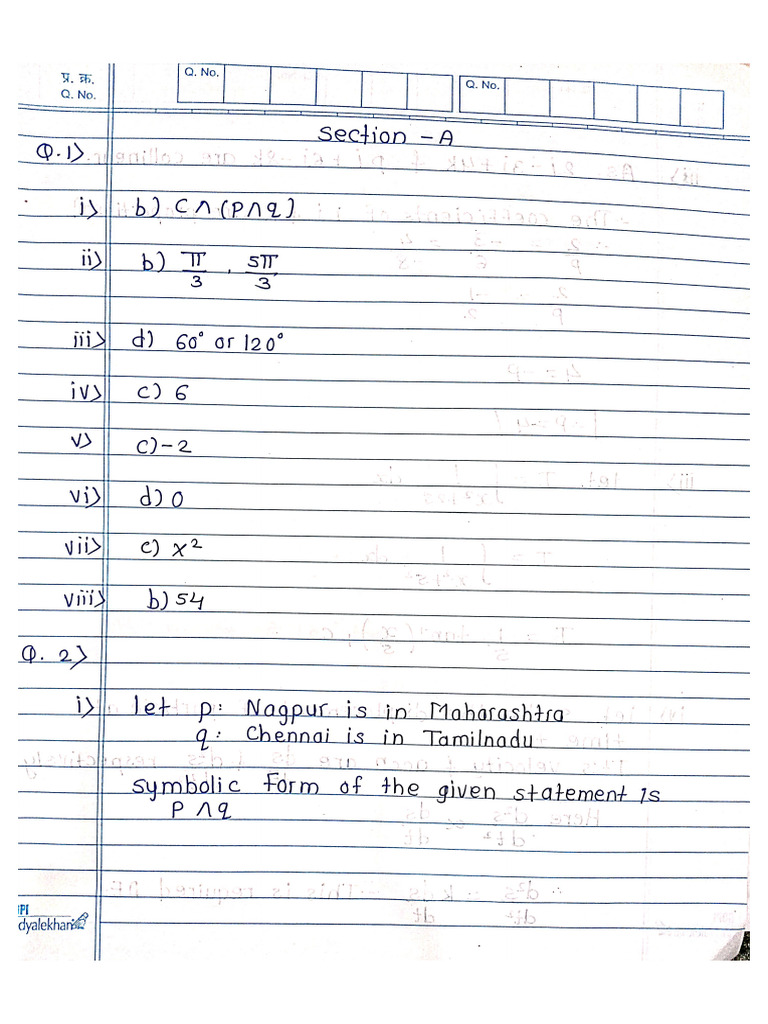 प्र. क्र.
Q. No.
Q. No.
Q. No.
Section - A
Q.1>
i> b) C ∧ (P ∧ q)
ii> b) π/3 , 5π/3
iii> d) 60° or 120°
iv> c) 6
v> c) -2
vi> d) 0
vii> c) x²
viii> b) 54
Q. 2>
i> let p: Nagpur is in Maharashtra
q: Chennai is in Tamilnadu
symbolic Form of the given statement is
P ∧ q
dyalekhan